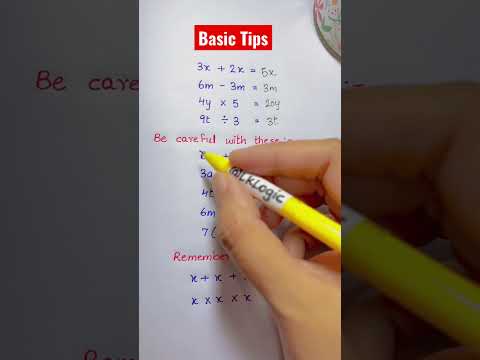 Basic Tips
3x + 2x = 5x
6m - 3m = 3m
4y × 5 = 20y
9t ÷ 3 = 3t
Be careful with these
x +
3a
4t
6m
7(
@LKLogic
Remember
x + x +
x × x × x